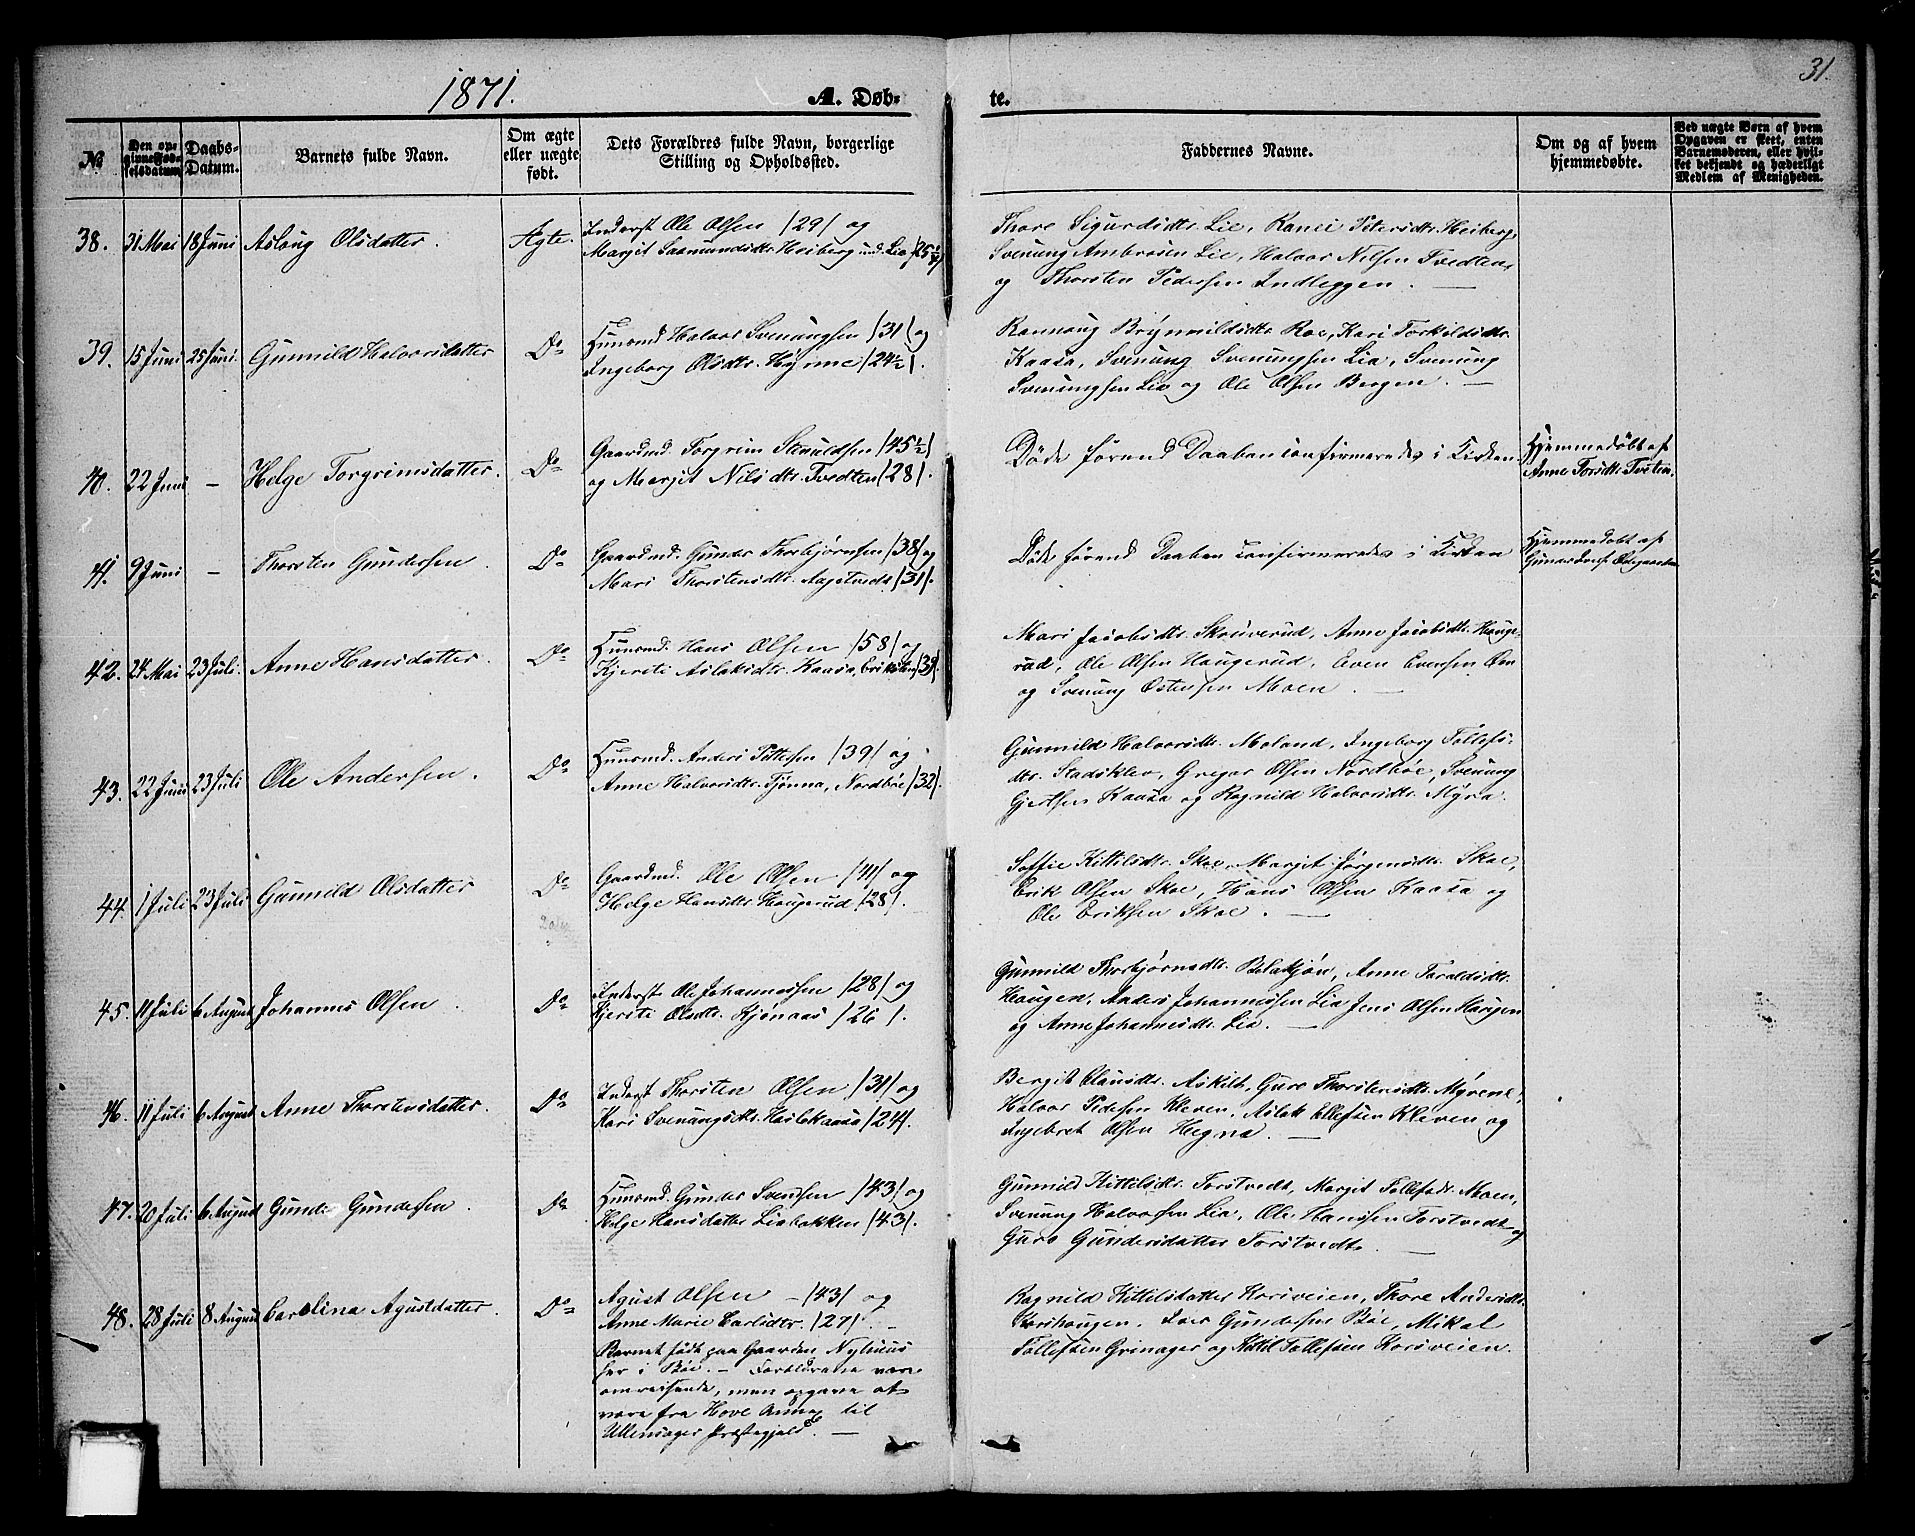 1871.
A. Døb-
te.
31.
No
Den op-
givne Fød-
selsdatum.
Daabs-
Datum.
Barnets fulde Navn.
Om ægte
eller uægte
født.
Dets Forældres fulde Navn, borgerlige
Stilling og Opholdssted.
Faddernes Navne.
Om og af hvem
hjemmedøbte.
Ved uægte Børn af hvem
Opgaven er skeet, enten
Barnemoderen, eller hvil-
ket bekjendt og hæderligt
Medlem af Menigheden.
38. 31 Mai 18 Juni Aslaug Olsdatter. Ægte.
Inderst Ole Olsen /29/ og
Margit Saamundsdtr. Heiberg und. Lia
Thore Sigurdsdtr. Lie, Ranei Petersdtr. Heiberg,
Svenung Ambrosen Lie, Halvor Nilsen Tvedten,
og Thorsten Pedersen Indleggen.
39. 15 Juni 25 Juni. Gunnild Halvorsdatter Do
Huusmd. Halvor Svenungsen /31/ og
Ingeborg Olsdtr. Hynne /24½/.
Rannaug Brynnildsdtr. Roe, Kari Torkildsdtr.
Kaasa, Svenung Svenungsen Lia, Svenung
Svenungsen Lia og Ole Olsen Bergen.
40. 22 Juni - Helge Torgrimsdatter. Do
Gaardmd. Torgrim Stenuldsen /45½/
og Margit Nilsdtr. Tvedten /28/.
Døde førend Daaben confirmeredes i Kirken
Hjemmedøbt af
Anne Torsdtr. Torstein.
41. 9 Juni - Thorsten Gundersen Do
Gaardmd. Gunder Thorbjørnsen /38/ og
Mari Thorstensdtr. Aagetvedt /31/.
Døde førend Daaben confirmeredes i Kirken
Hjemmedøbt af
Gunder
42. 24 Mai 23 Juli. Anne Hansdatter. Do
Huusmd. Hans Olsen /58/ og
Kjersti Aslaksdtr. Kaasa, Eriksten /39/.
Mari Jacobsdtr. Skruverud, Anne Jacobsdtr. Hauge-
rud, Ole Olsen Haugerud, Even Evensen Om
og Svenung Østensen Moen.
43. 22 Juni 23 Juli Ole Andersen. Do
Huusmd. Anders Tittesen /39/ og
Anne Halvorsdtr. Tjønna, Nordbøe /32/.
Gunnild Halvorsdtr. Moland, Ingeborg Tollefs-
dtr. Stadsklev, Gregar Olsen Nordbøe, Svenung
Gjertsen Kaasa og Ragnild Halvorsdtr. Myra.
44. 1 Juli 23 Juli Gunnild Olsdatter Do
Gaardmd. Ole Olsen /41/ og
Helge Hansdtr. Haugerud /28/.
Soffie Kittilsdtr. Skoe, Margit Jørgensdtr. Skoe,
Erik Olsen Skoe, Hans Olsen Kaasa og
Ole Eriksen Skoe.
45. 11 Juli 6 August Johannes Olsen. Do
Inderst Ole Johannessen /28/ og
Kjersti Olsdtr. Kjønaas /26/.
Gunnild Thorbjørnsdtr. Anne Taraldsdtr.
Haugen, Anders Johannessen Lia Jens Olsen Haugen
og Anne Johannesdtr. Lia.
46. 11 Juli 6 August Anne Thorstensdatter. Do
Inderst Thorsten Olsen /31/ og
Kari Svenungsdtr. Heilekaasa /24/.
Bergit Clausdtr. Askilt, Guro Thorstensdtr. Myrene,
Halvor Pedersen Kleven, Aslak Ellefsen Kleven og
Ingebret Olsen Hegna.
47. 20 Juli 6 August Gunder Gundersen. Do
Huusmd. Gunder Svensen /43/ og
Helge Hansdatter Liabakken /43/.
Gunnild Kittilsdtr. Torstvedt, Margit Tollefsdr. Moen,
Svenung Halvorsen Lia, Ole Hanssen Torstvedt og
Guro Gundersdatter Torstvedt.
48. 28 Juli 8 August Carolina Agustdatter. Do
Agust Olsen - /43/ og
Anne Marie Carlsdtr. /27/.
Barnet født paa Gaarden Nyhuus
her i Bøe. - Forældrene vare
omreisende, men opgave at
være fra Hove Annex til
Ullensager Præstegjeld.
Ragnild Kittelsdatter Korsveien, Thore Andersdtr.
Korshaugen, Lars Gundersen Bøe, Mikal
Tollefsen Grinager og Kittil Tollefsen Korsveien.